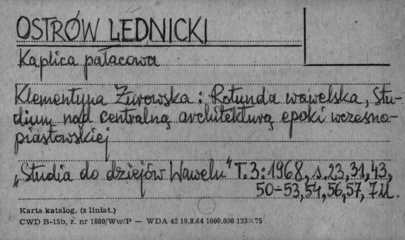 OSTRÓW LEDNICKI
Kaplica pałacowa
Klementyna Żurowska: Rotunda wawelska, Stu-
dium nad centralną architekturą epoki wczesno-
piastowskiej
„Studia do dziejów Wawelu" T. 3: 1968, s. 23, 31, 43,
50-53, 54, 56, 57, 71
Karta katalog. (z liniat.)
CWD B-15b, z. nr 1880/Ww/P — WDA 42 19.8.64 1000.000 125×75